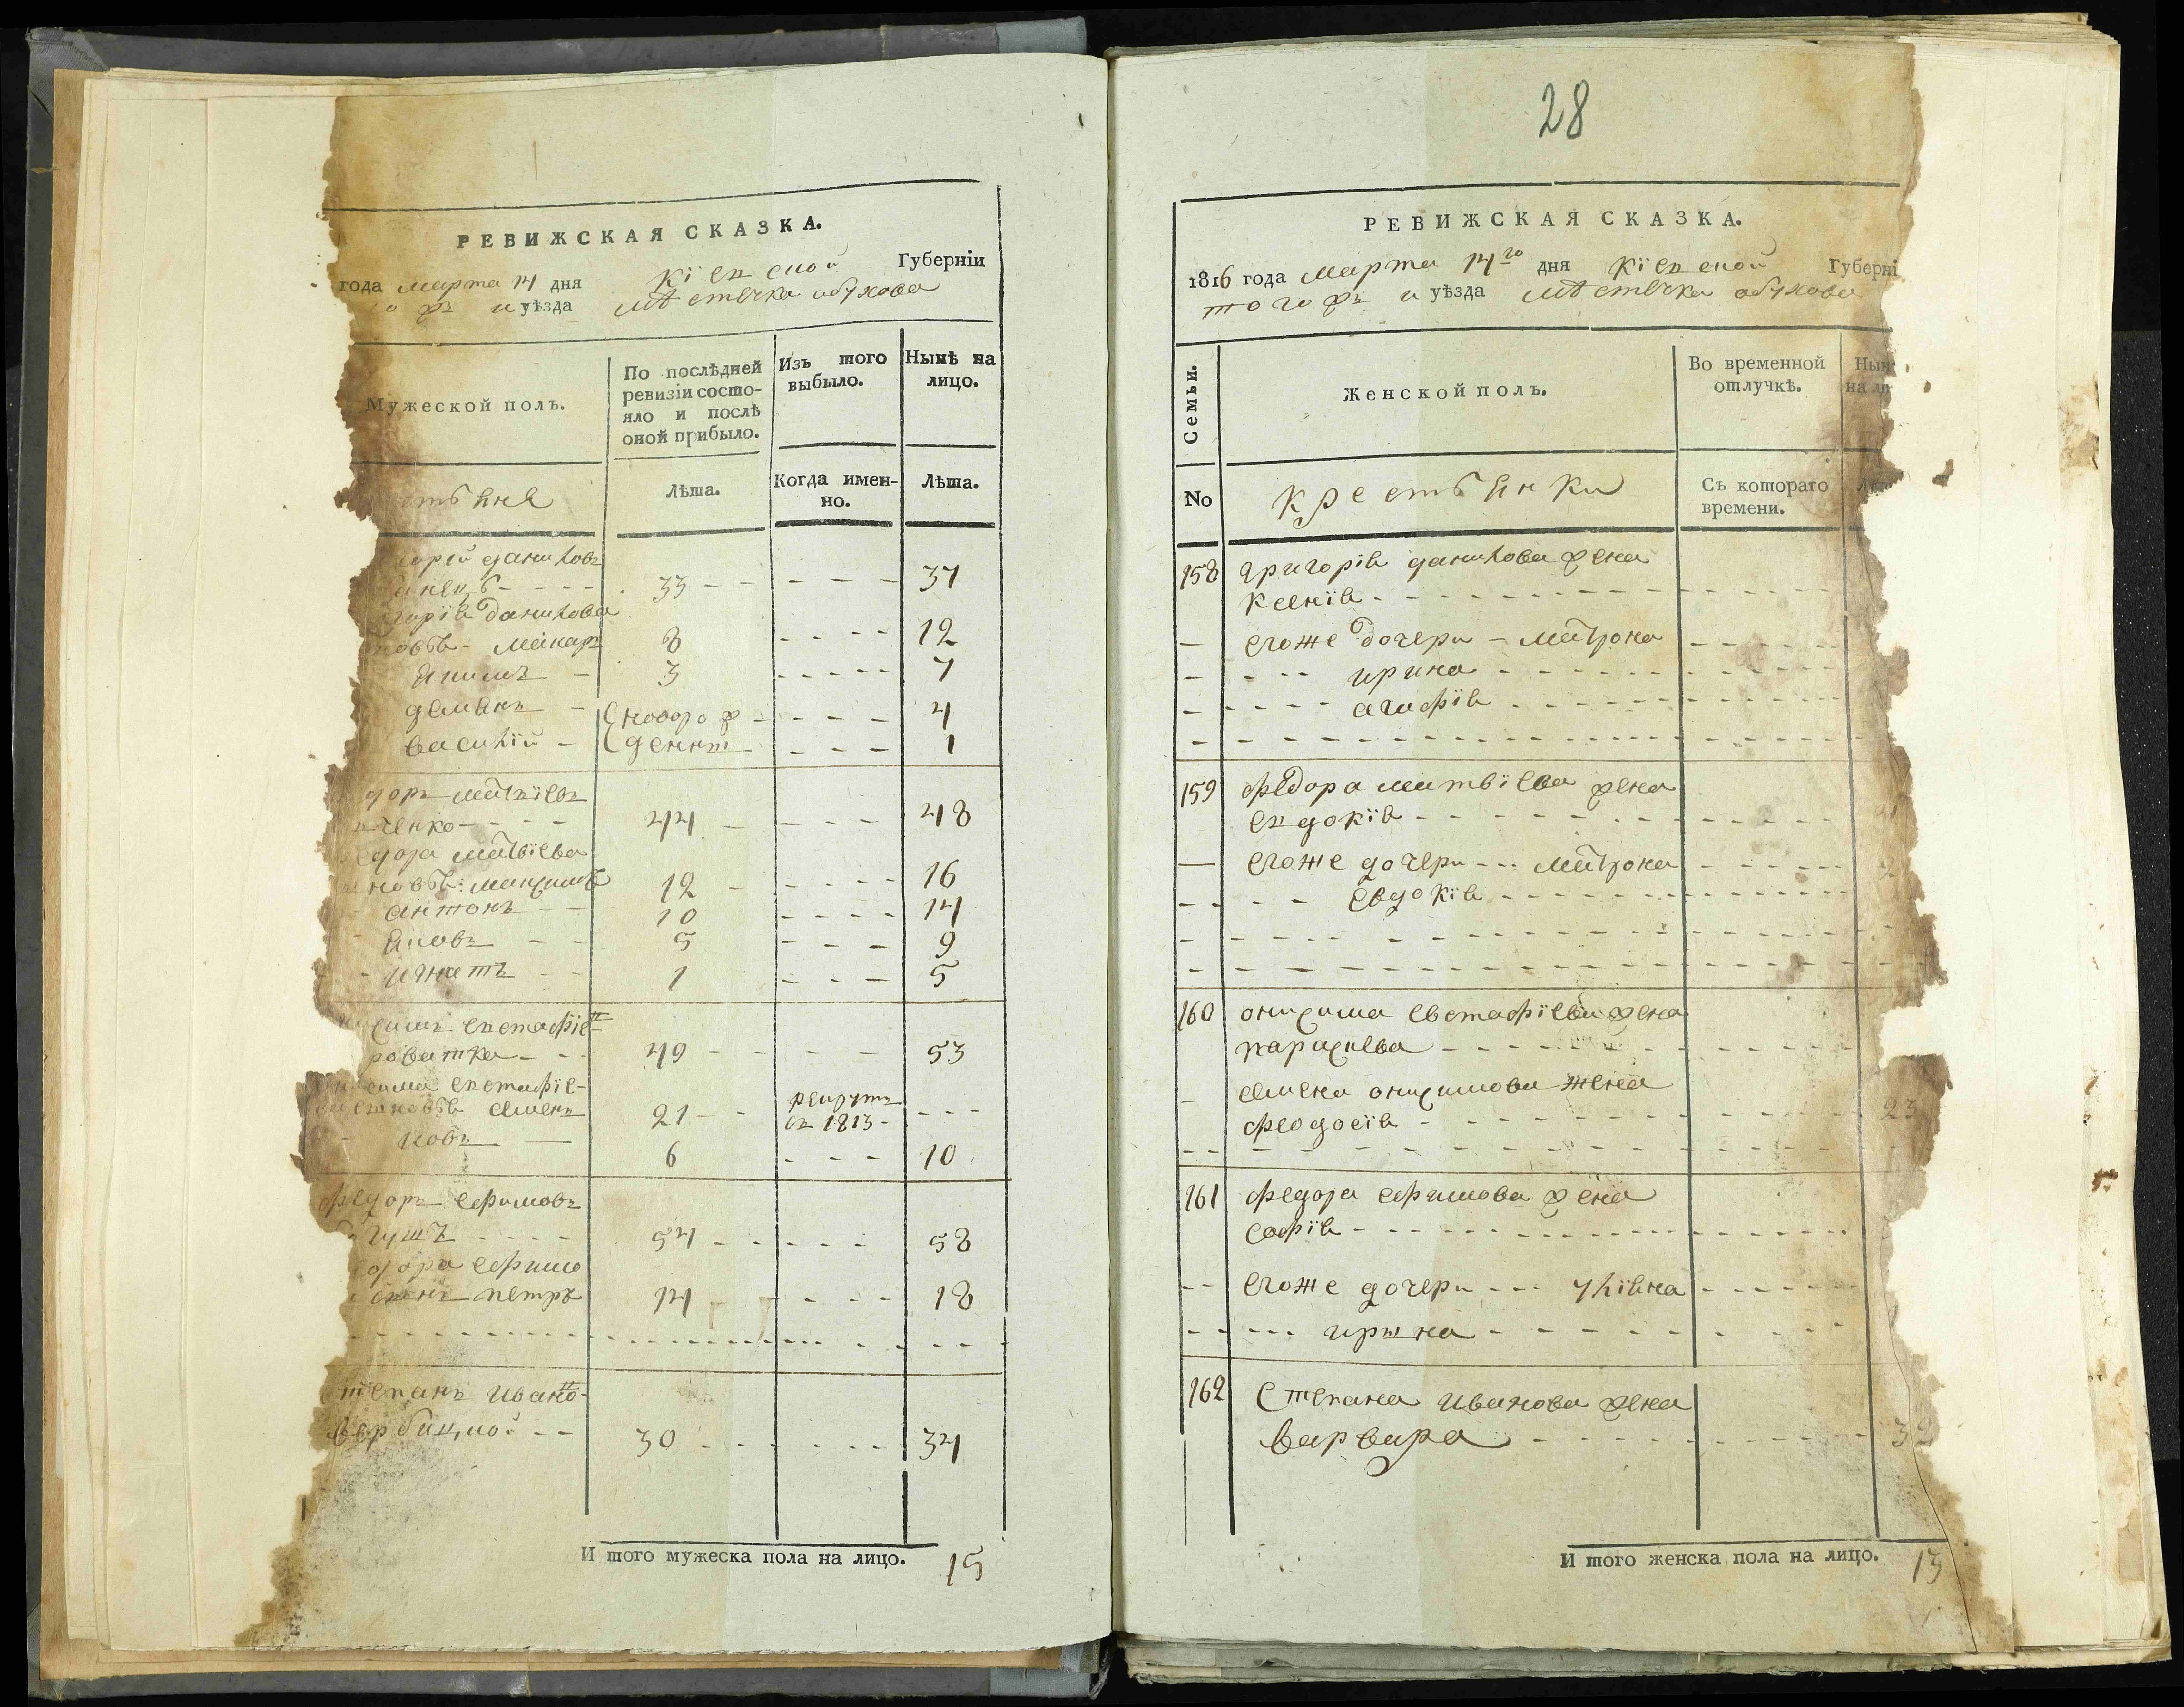 РЕВИЖСКАЯ СКАЗКА.
года марта 14 дня Кіевской Губерніи
го жъ и уѣзда мѣстечка обухова
Мужеской полъ.
По послѣдней
ревизіи состо-
яло и послѣ
оной прибыло.
Изъ того
выбыло.
Нынѣ на
лицо.
Лѣта.
Когда имен-
но.
Лѣта.
даниловъ
33 37
данилова
макаръ 8 12
якимъ 3 7
демянъ новорож 4
василій денны 1
матвіевъ
ченко 44 48
матвіева
максимъ 12 16
антонъ 10 14
яковъ 5 9
игнатъ 1 5
евстафіе
49 53
евстафіе-
семенъ 21 рекрутъ
въ 1813
6 10
федоръ ефимовъ
54 58
ефимо
петръ 14 18
степанъ ивано
30 34
И того мужеска пола на лицо. 15
28
РЕВИЖСКАЯ СКАЗКА.
1816 года марта 14го дня Кіевской Губерні
того жъ и уѣзда мѣстечка обухова
Семьи.
Женской полъ.
Во временной
отлучкѣ.
Нын
на ли
No
крестянки
Съ котораго
времени.
158 григорія данилова жена
ксенія
егоже дочери матрона
ирина
агафія
159 федора матвіева жена
евдокія
егоже дочери матрона
евдокія
160 онисима евстафіева жена
параскева
семена онисимова жена
феодосія 23
161 федора ефимова жена
софія
егоже дочери уліяна
ирина
162 степана иванова жена
варвара
И того женска пола на лицо. 13